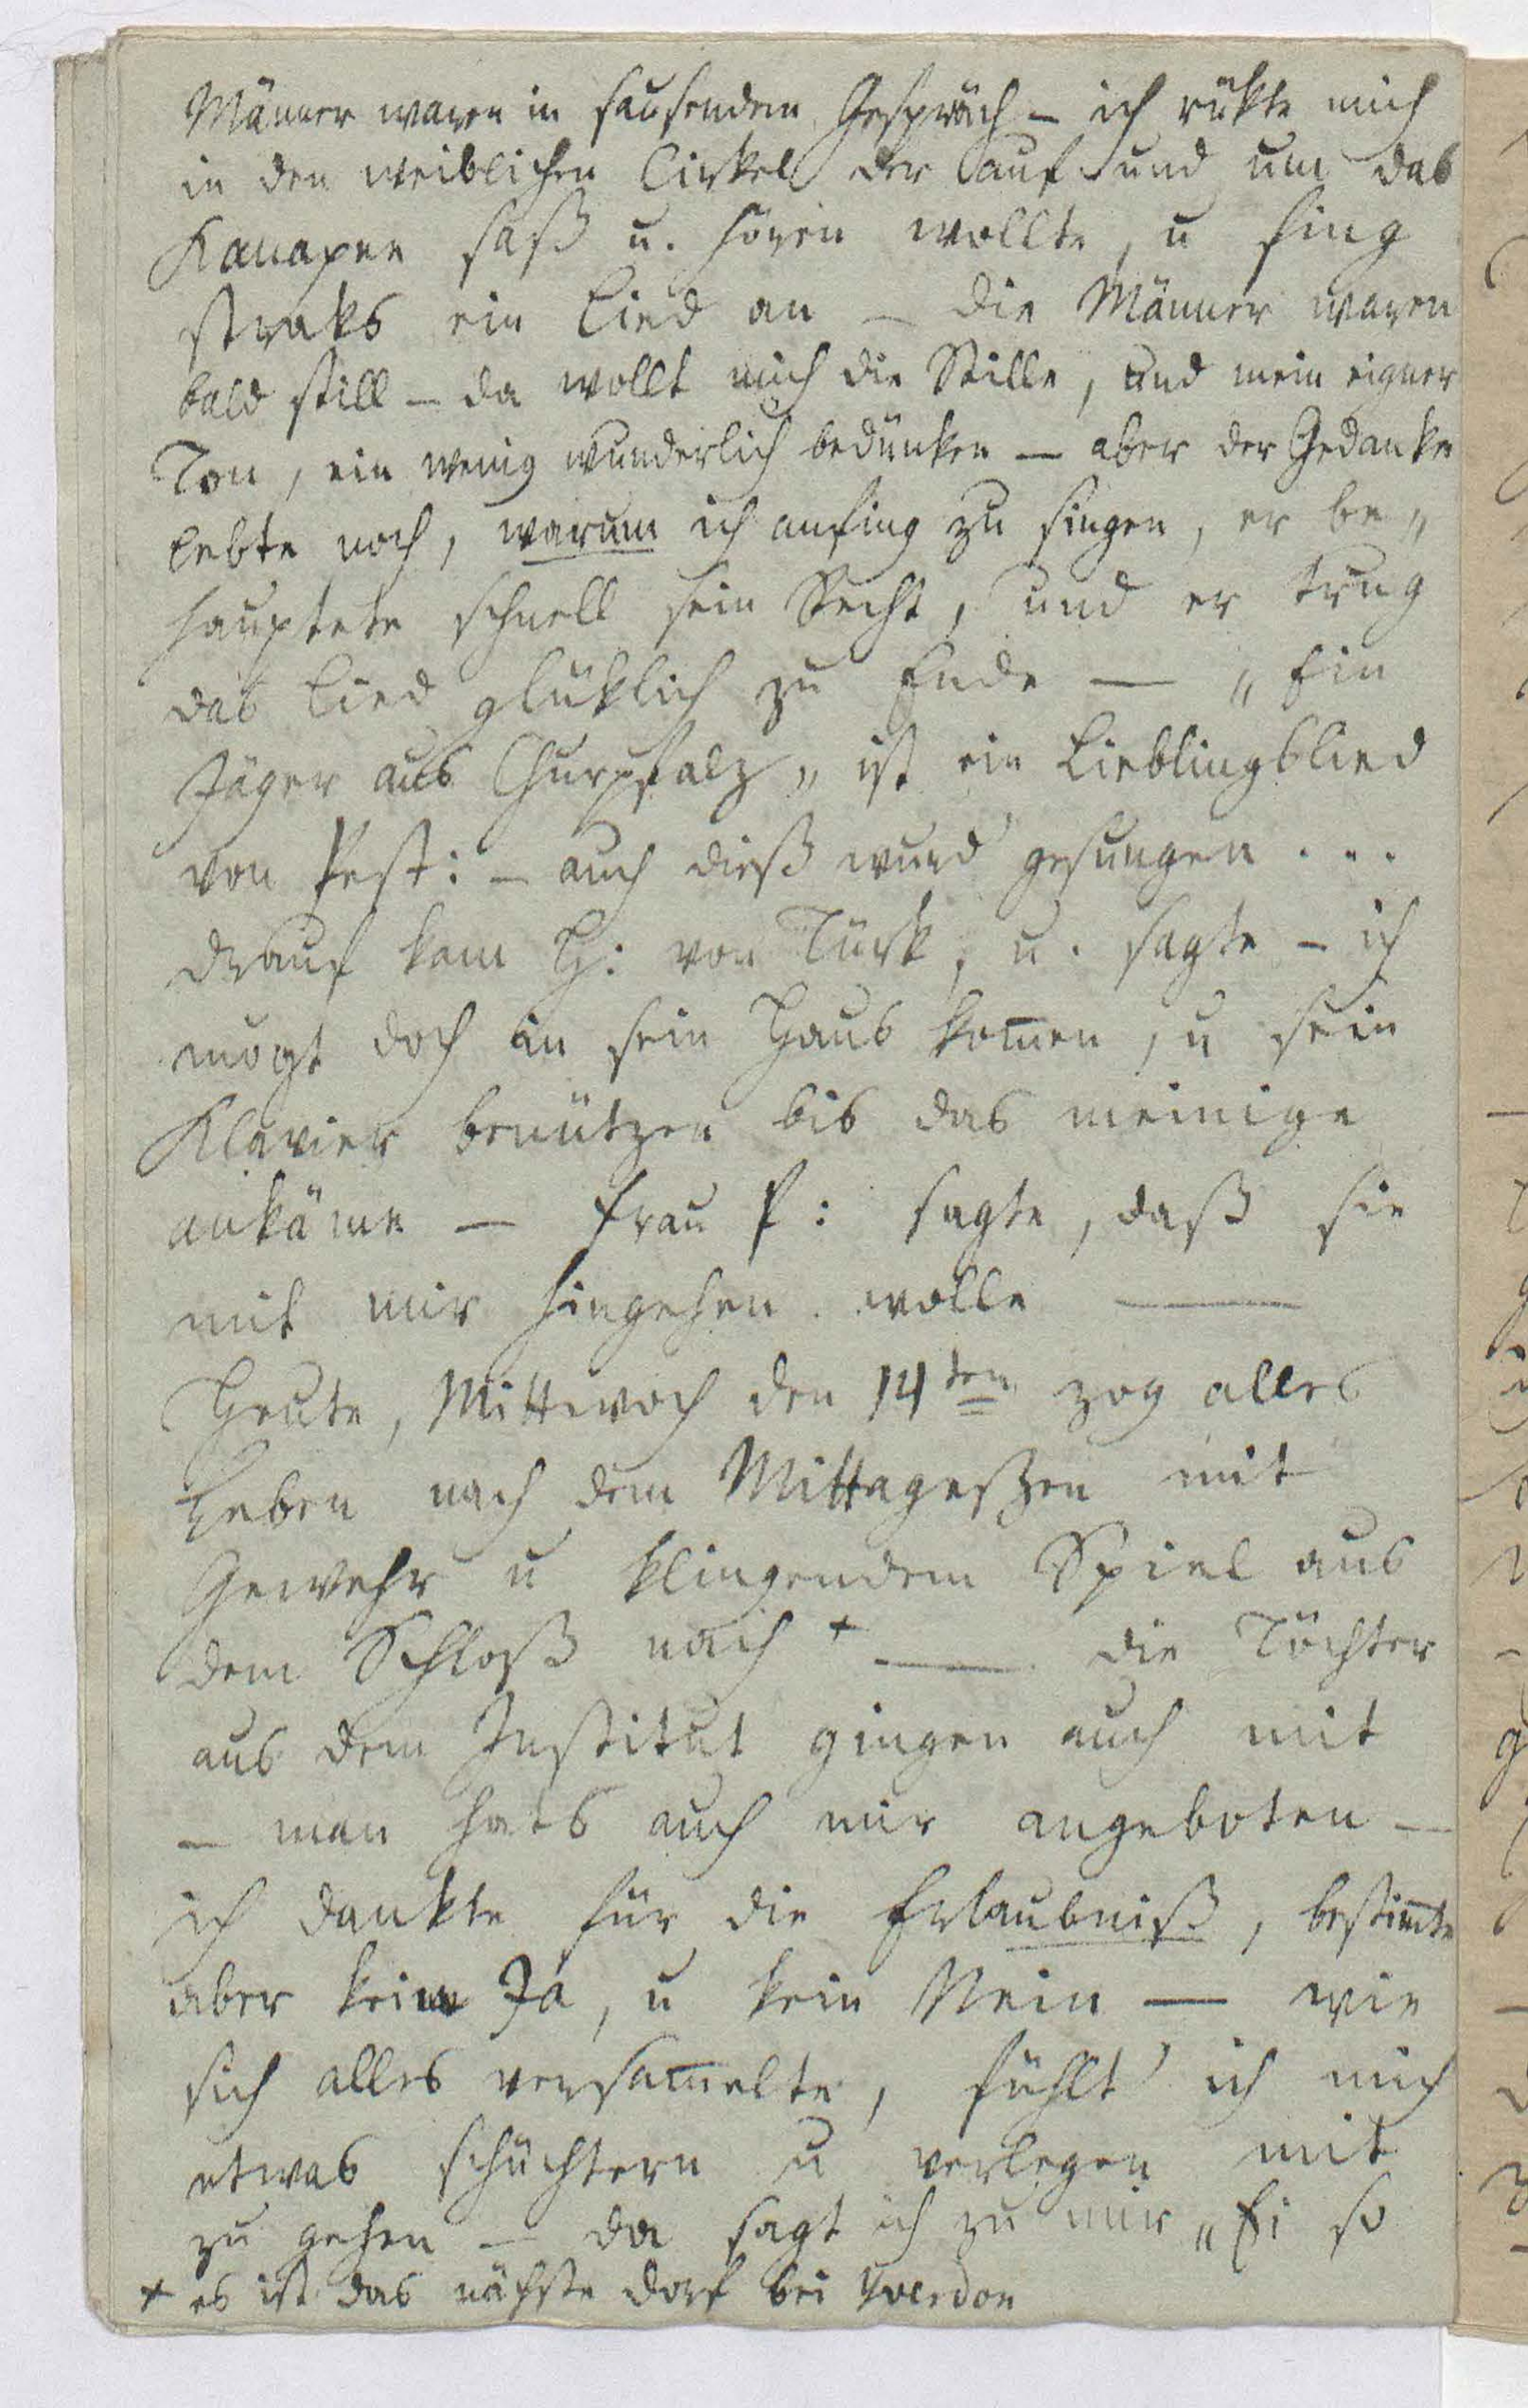 Männer waren in sausendem Gespräch – ich rükte mich
in den weiblichen Cirkel der auf und um das
Kanapee saß u. hören wollte, u fing
straks ein Lied an – die Männer waren
bald still – da wollt mich die Stille, und mein eigner
Ton, ein wenig wunderlich bedünken – aber der Gedanke
lebte noch, warum ich anfing zu singen, er be„
hauptete schnell sein Recht, und er trug
das Lied glüklich zu Ende — „Ein
Jäger aus Churpfalz„ ist ein Lieblingslied
von Pest: – auch dieß wurd' gesungen ...
drauf kam H: von Türk, u. sagte – ich
mögt doch in sein Haus kom̄en, u sein
Klavier benützen bis das meinige
ankäme – Frau P: sagte, daß sie
mit mir hingehen wolle —
Heute, Mittwoch den 14ten zog alles
Leben nach dem Mittageßen mit
Gewehr u klingendem Spiel aus
dem Schloß nach + — die Töchter
aus dem Institut gingen auch mit
– man hats auch mir angeboten –
ich dankte für die Erlaubniß, bestim̄te
aber kein Ja, u kein Nein — wie
sich alles versam̄elte, fühlt' ich mich
etwas schüchtern u verlegen mit
zu gehen – da sagt ich zu mir „Ei so
+ es ist das nächste Dorf bei Yverdon